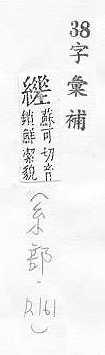 38字彙補
蘇可切音
鎖鮮潔貌
(糸部・P.161)